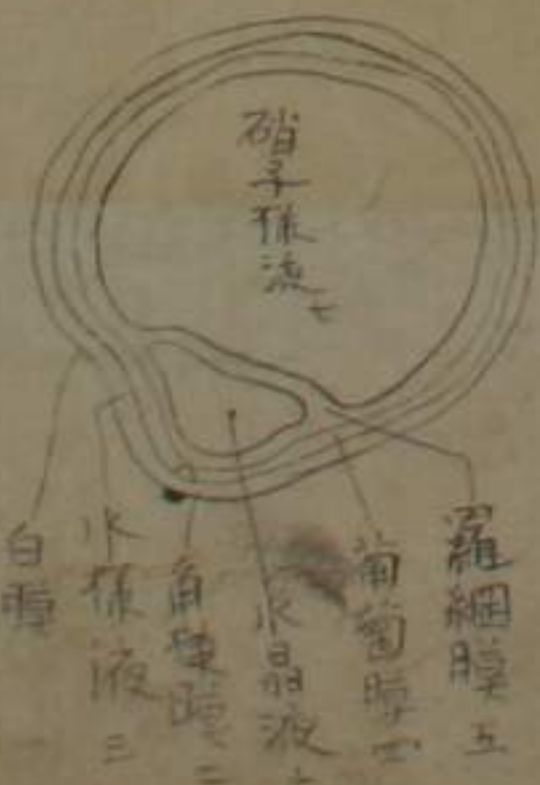 硝子様液 七
羅網膜 五
葡萄膜 四
水晶液 六
角硬膜 二
水様液 三
白膜 一